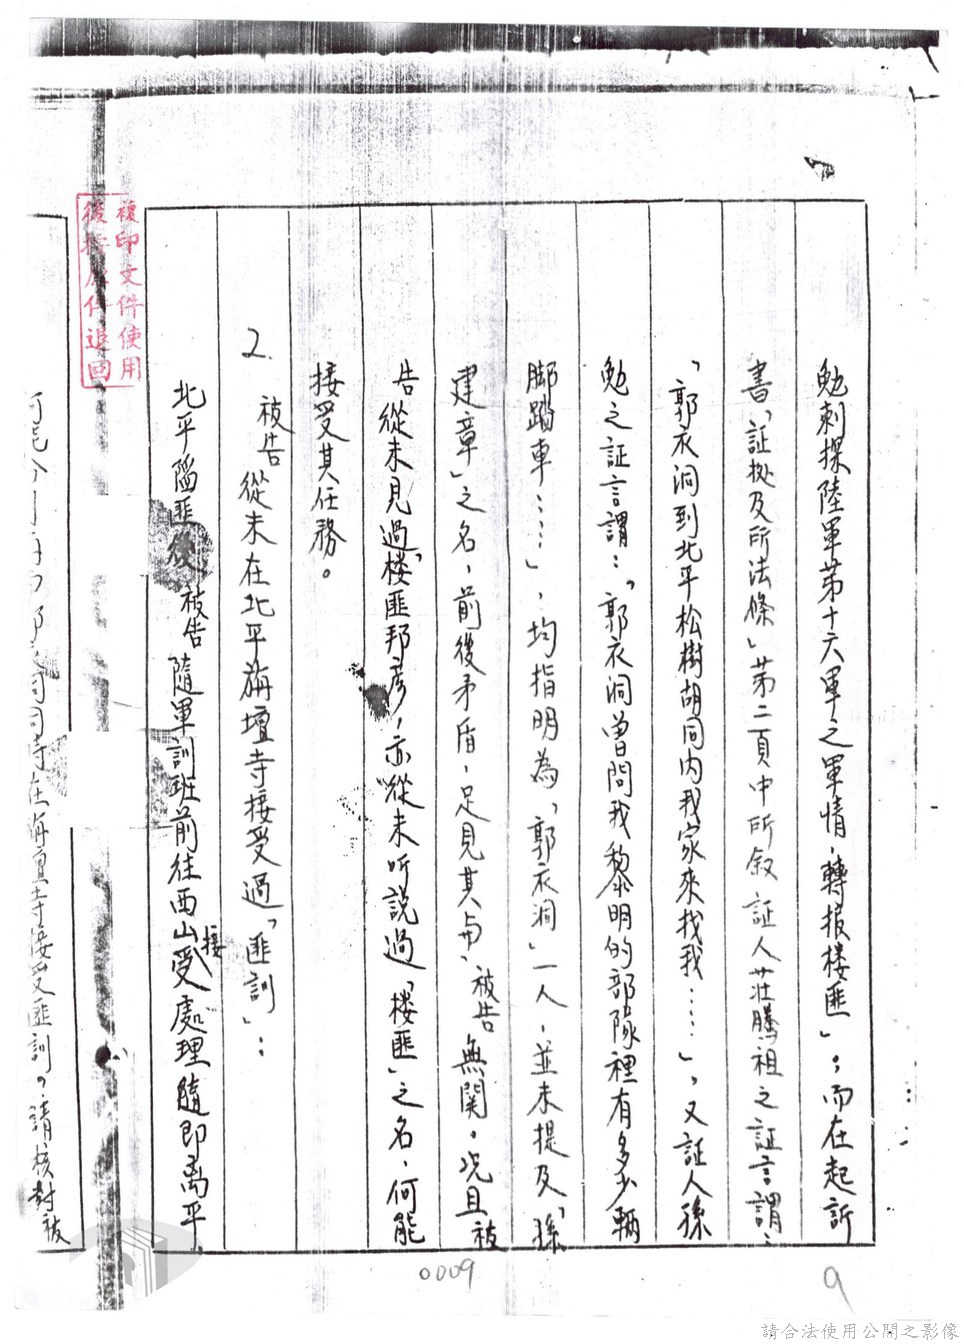 勉刺探陸軍苐十六軍之軍情，轉报楼匪」；而在起訴
書「証拠及所法條」苐二頁中所叙証人荘騰祖之証言謂：
「郭衣洞到北平松樹胡同内我家來找我……」，又証人孫
勉之証言謂：「郭衣洞曽問我黎明的部隊裡有多少輌
脚踏車……」，均指明為「郭衣洞」一人，並未提及「孫
建章」之名，前後矛盾，足見其与被告無関。况且被
告從未見過「楼匪邦彦，亦從未听説過「楼匪」之名，何能
接受其任務。
2. 被告從未在北平旃壇寺接受過「匪訓」：
北平陷匪後被告隨軍訓班前往西山接受處理隨即离平，
同時在旃壇寺接受匪訓，請核対被
複印文件使用
後将原件退回
9
0009
請合法使用公開之影像